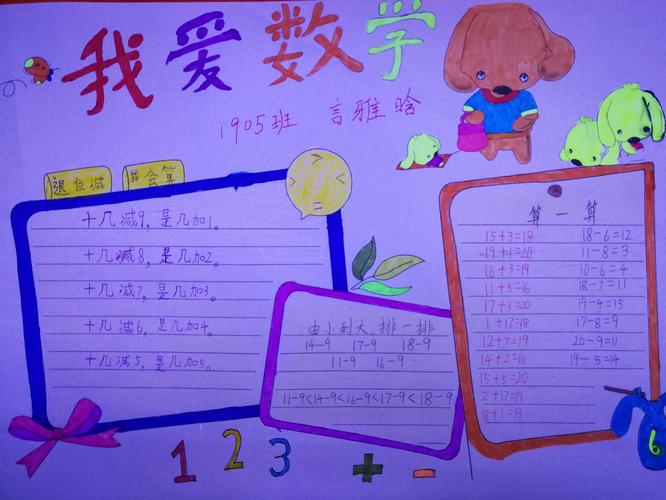 我爱数学
1905班 言雅晗
退位减 我会算
十几减9，是几加1。
十几减8，是几加2。
十几减7，是几加3。
十几减6，是几加4。
十几减5，是几加5。
由小到大，排一排
14-9 17-9 18-9
11-9 16-9
11-9<14-9<16-9<17-9<18-9
算一算
15+3=18 18-6=12
19+1=20 11-8=3
16+3=19 10-6=4
11+5=16 18-7=11
17+3=20 19-4=15
1+17=18 17-8=9
12+7=19 20-9=11
14+2=16 19-5=14
15+5=20
2+17=19
18+1=19
1 2 3 + -
6